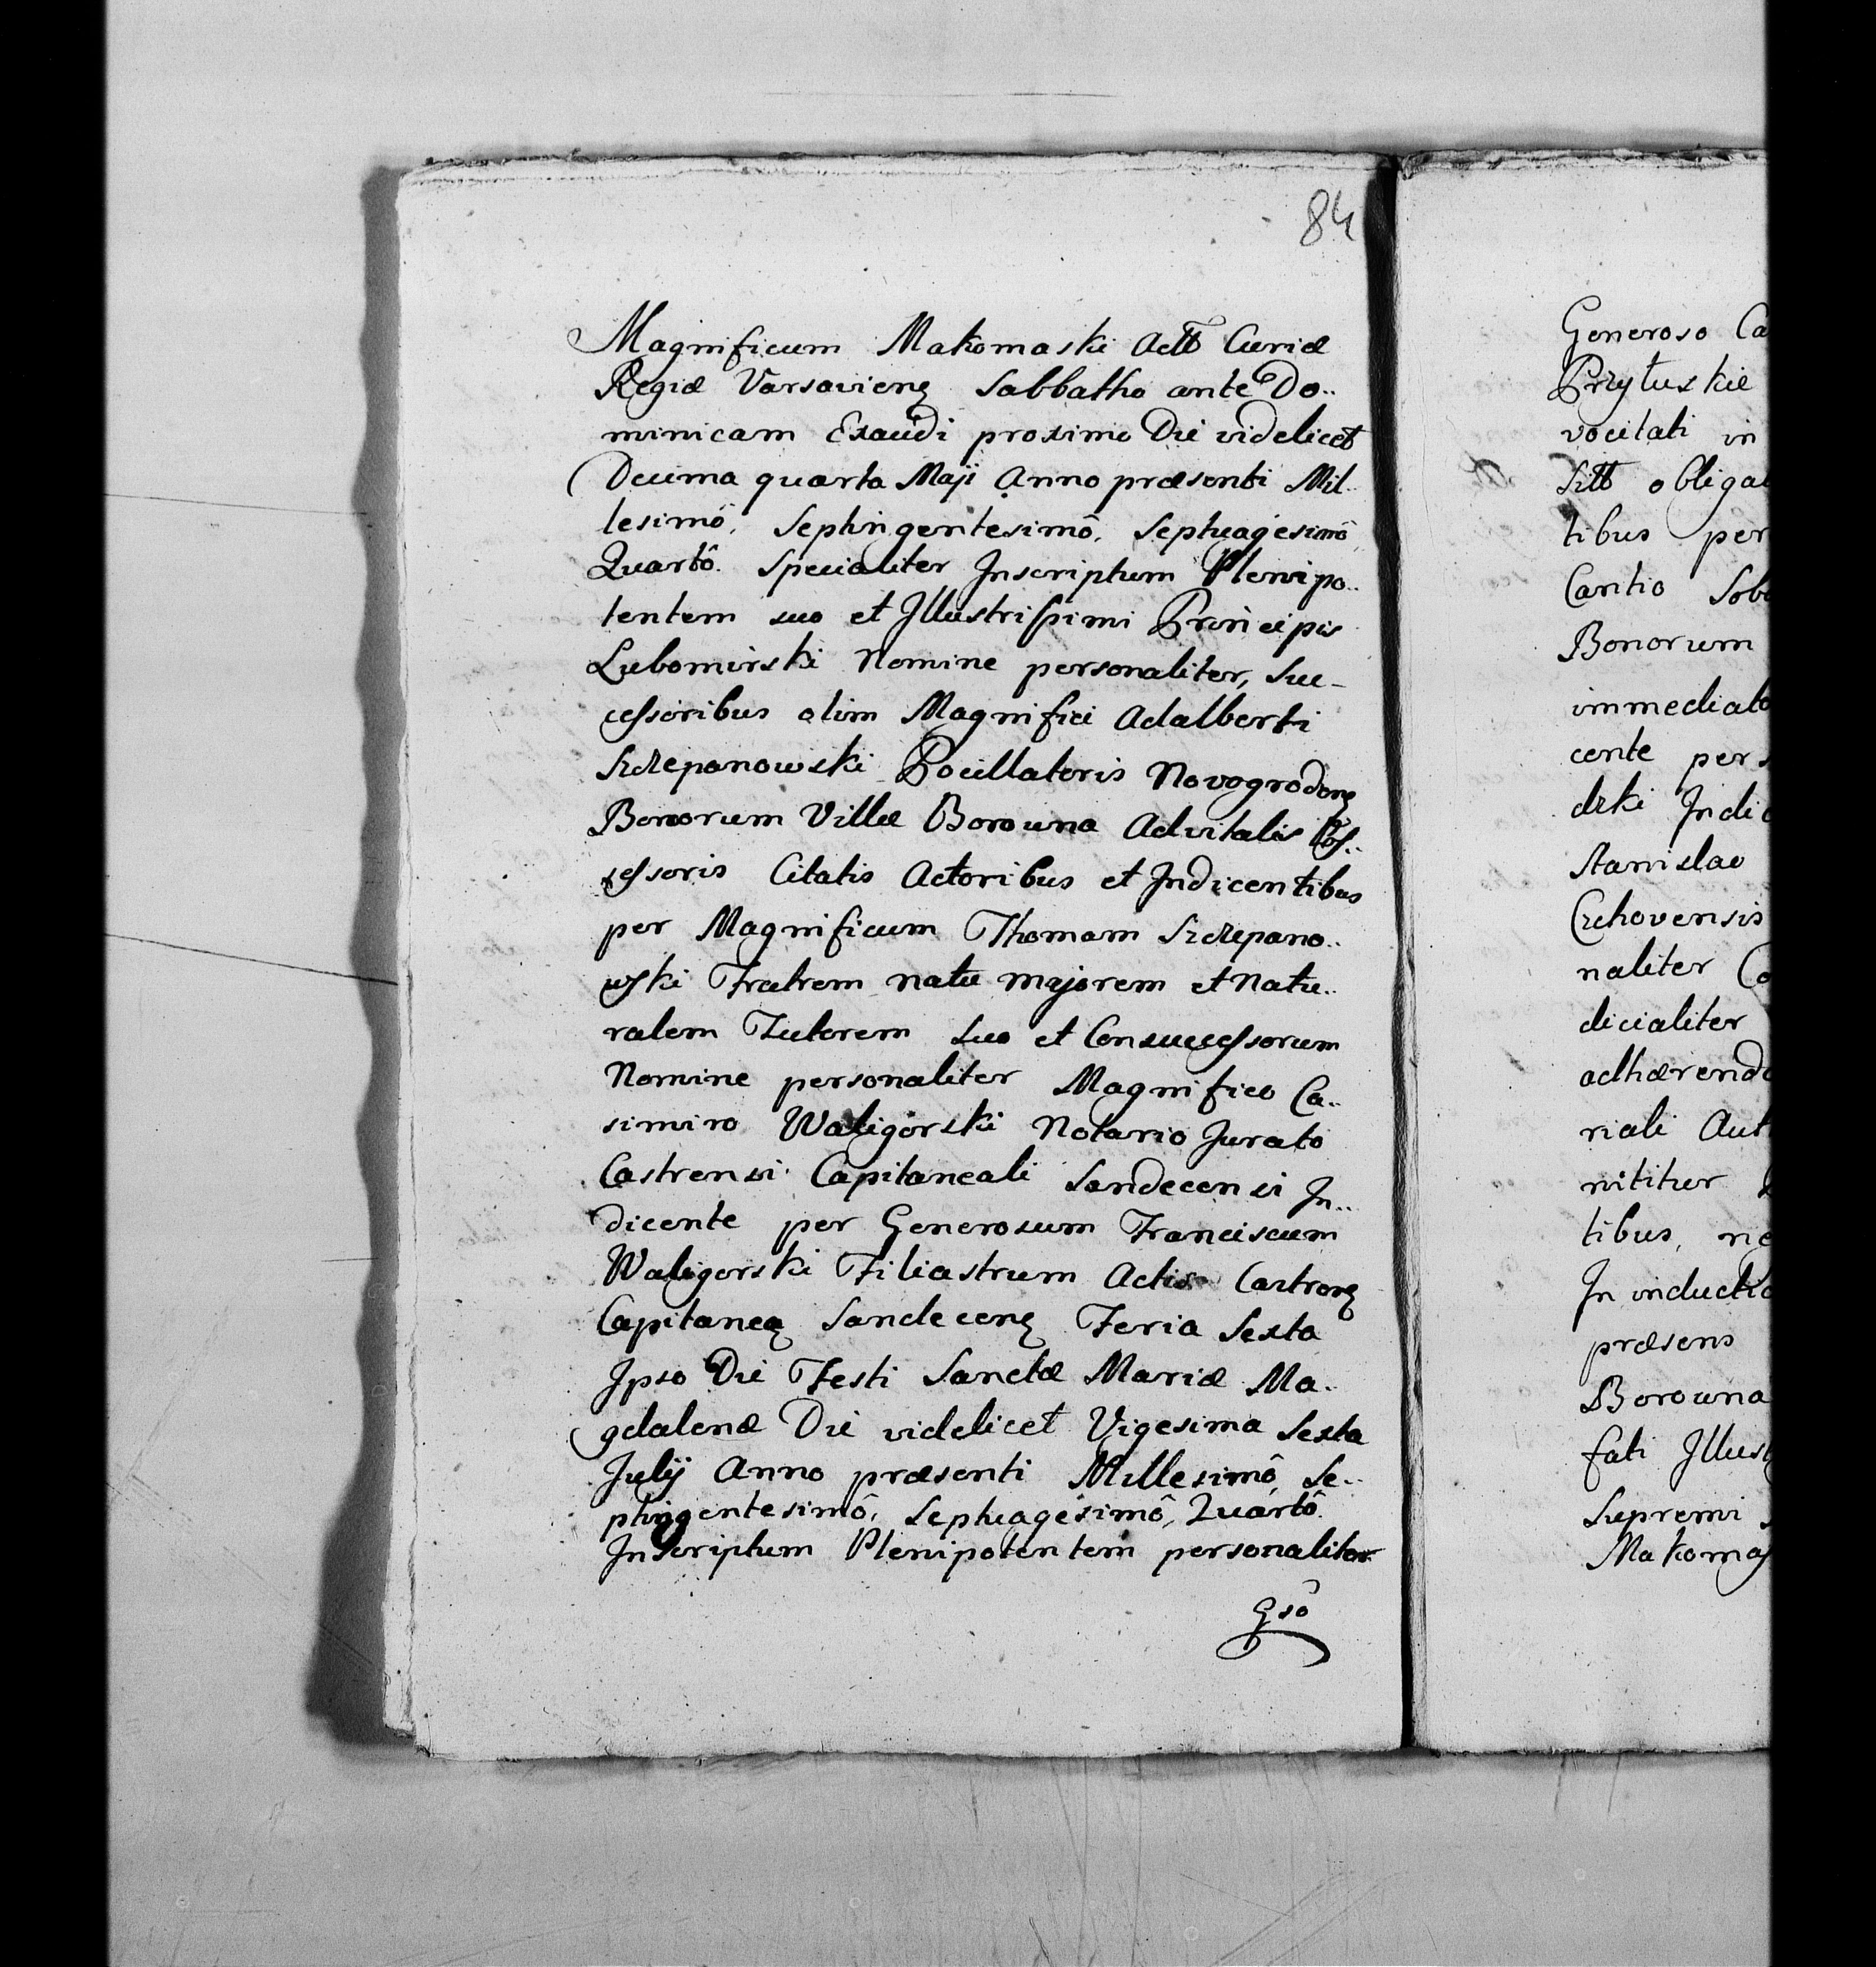 84
Magnificum Makomaski Actt Curiæ
Regiæ Varsavienę Sabbatho ante Do..
minicam Exaudi proximo Die videlicet
Decima quarta Maji Anno præsenti Mil..
lesimô, Septingentesimô, Septuagesimô
Quartô. Specialiter Inscriptum Plenipo..
tentem suo et Illustrissimi Principis
Lubomirski Nomine personaliter, Suc-
cessoribus olim Magnifici Adalberti
Szczepanowski Pocillatoris Novogrodenę
Bonorum Villæ Borowna Advitalis Pos..
sessoris Citatis Actoribus et Indicentibus
per Magnificum Thomam Szczepano..
wski Fratrem natu majorem et Natu..
ralem Tutorem Suo et Consuccessorum
Nomine personaliter Magnifico Ca..
simiro Waligorski Notario Jurato
Castrensi Capitaneali Sandecensi In..
dicente per Generosum Franciscum
Waligorski Filiastrum Actis Castrenę
Capitaneą Sandecenę Feria Sexta
Ipso Die Festi Sanctæ Mariæ Ma..
gdalenæ Die videlicet Vigesima Sexta
Julij Anno præsenti Millesimô, Se..
ptingentesimô, Septuagesimô, Quartô.
Inscriptum Plenipotentem personaliter
Gsô
Generoso Ca
Przytuskie
vocitati in
Sitt obligat
tibus per
Cantio Sob
Bonorum
immediato
cente pers
dzki Indic
Stanislao
Czchovensis
naliter Co
dicialiter
adhærendo
riali Aut
nititur
tibus, ne
In inductio
præsens
Borowna
fati Illust
Supremi
Makomas